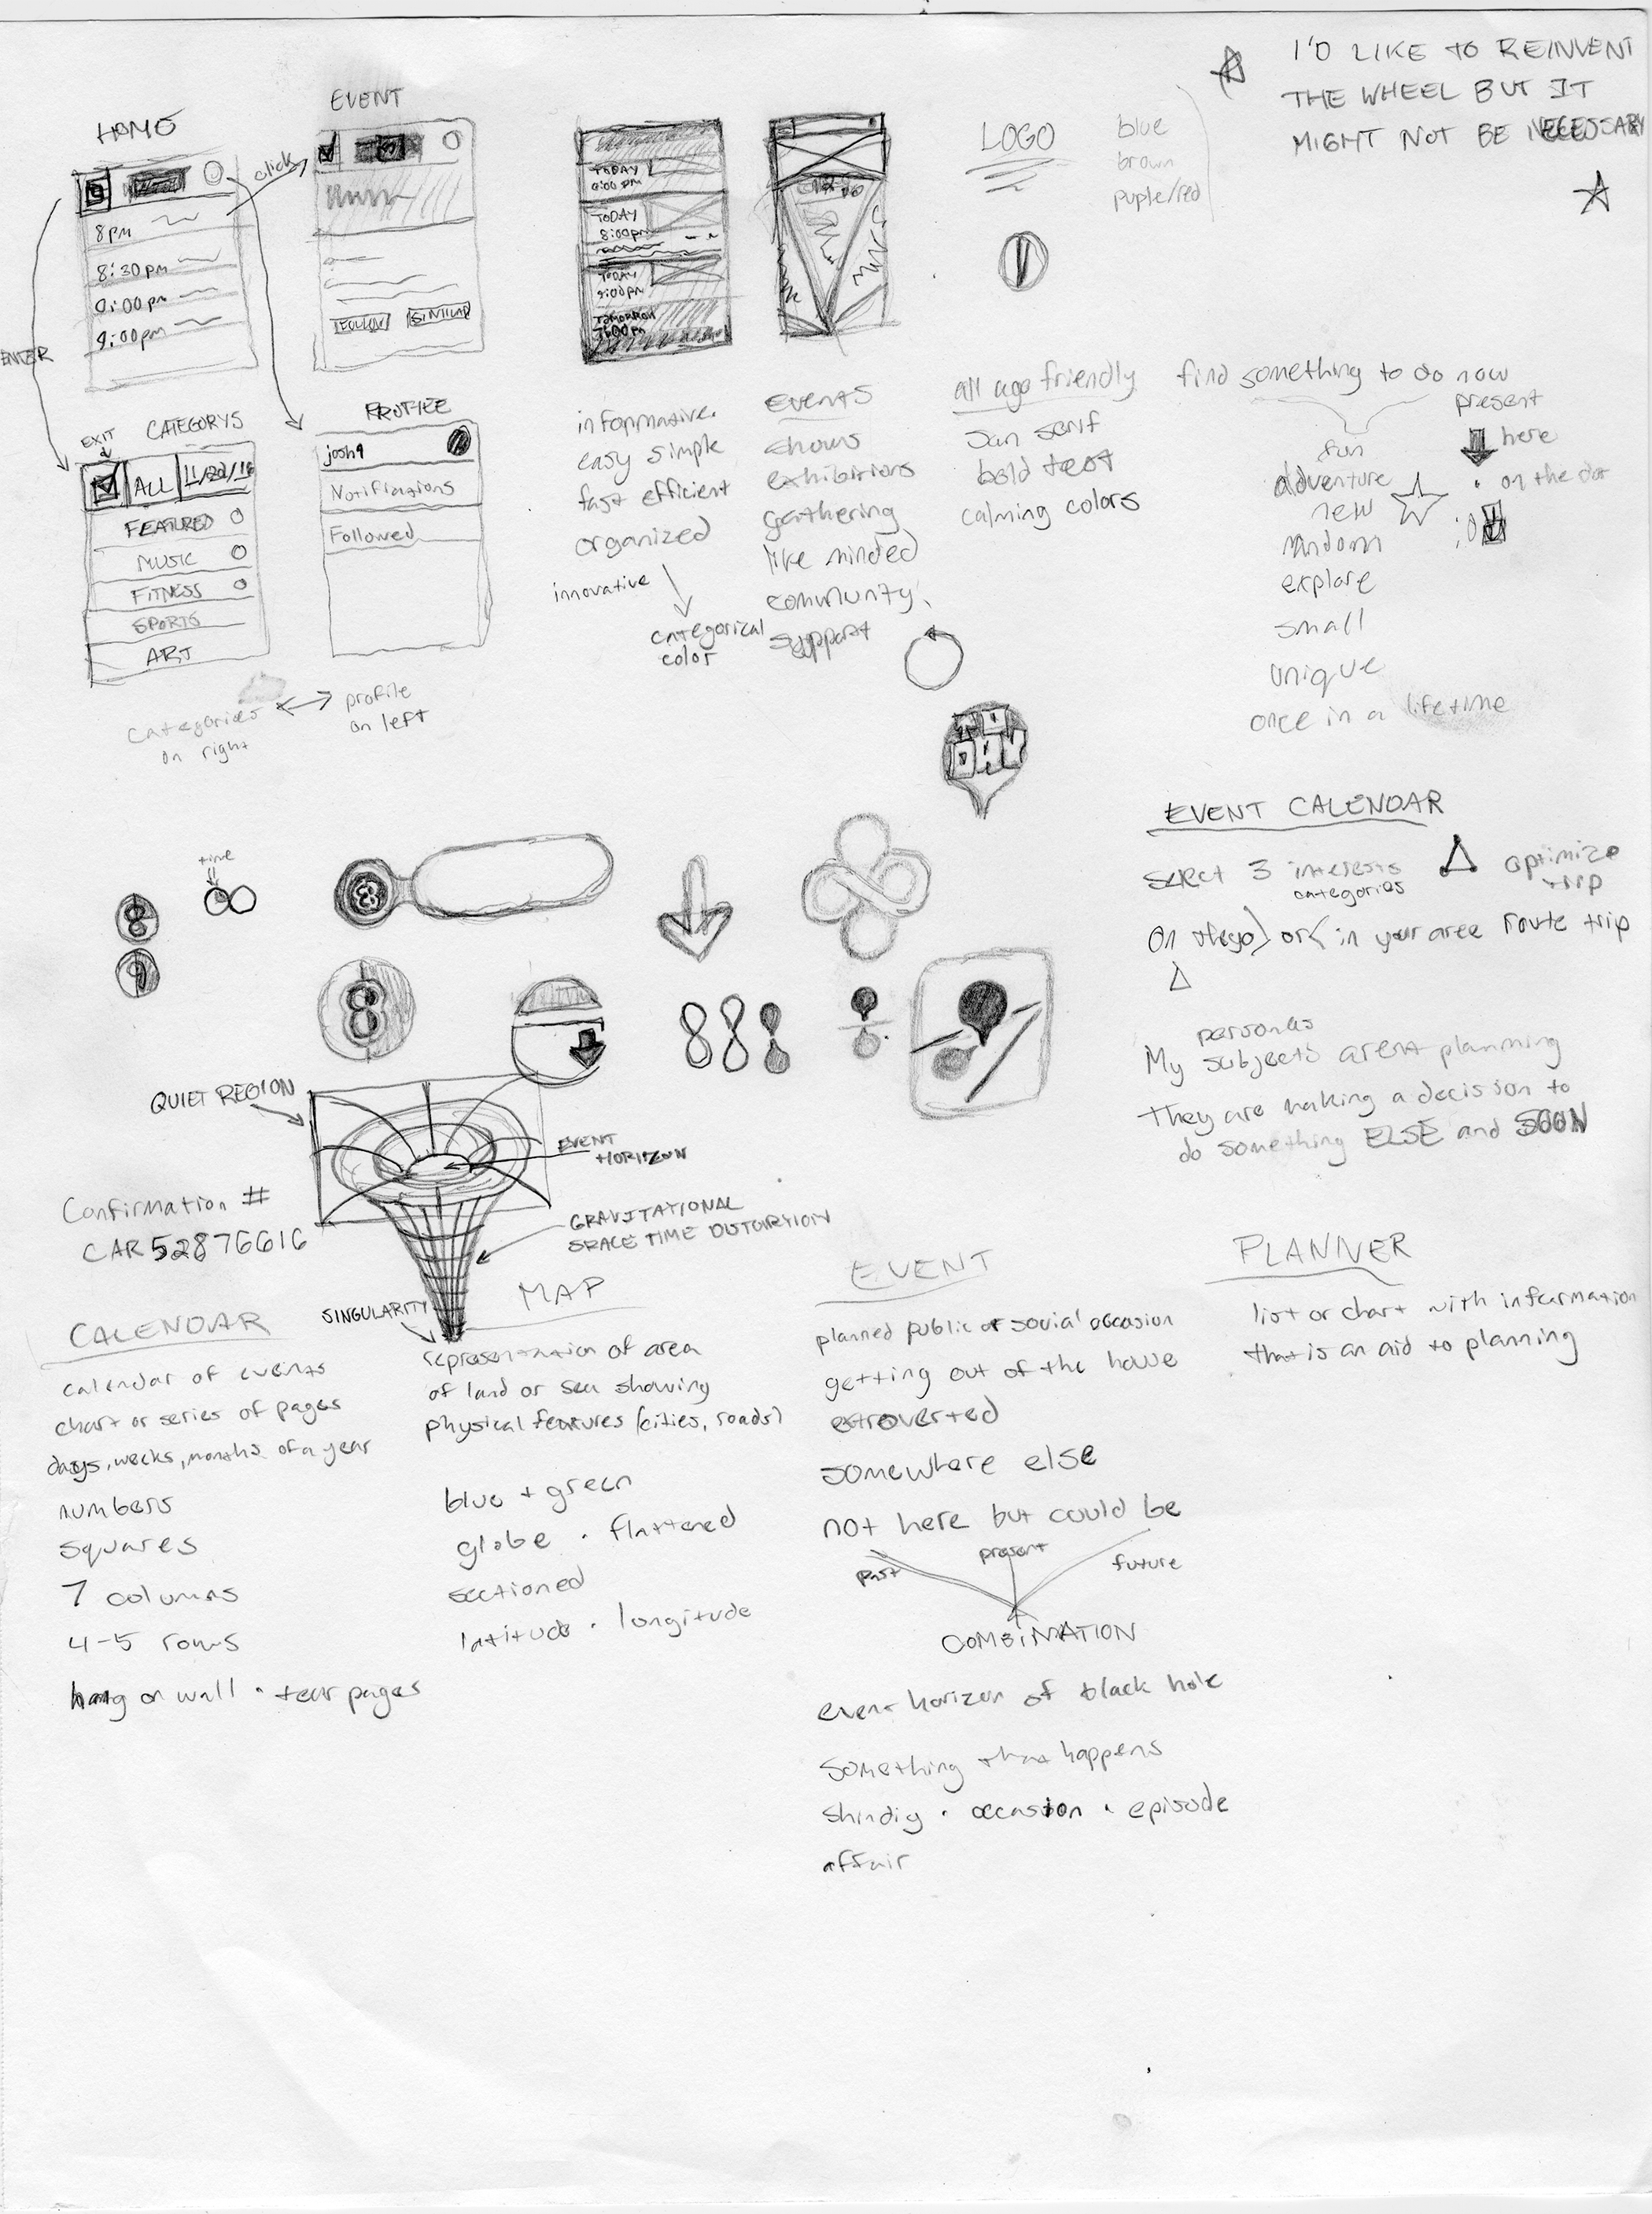 I'D LIKE TO REINVENT
THE WHEEL BUT IT
MIGHT NOT BE NECESSARY
HOME
8pm
8:30pm
9:00pm
click
ENTER
EVENT
FOLLOW
SIMILAR
TODAY
TODAY
8:00pm
TODAY
9:00pm
TOMORROW
LOGO
blue
brown
puple/red
EXIT
CATEGORYS
ALL
FEATURED
MUSIC
FITNESS
SPORTS
ART
categories
on right
profile
on left
PROFILE
josh9
Notifications
Followed
informative.
easy simple
fast efficient
organized
innovative
categorical
color
EVENTS
shows
exhibitions
gathering
like minded
community
support
all age friendly
San serif
bold text
calming colors
find something to do now
fun
adventure
new
random
explore
small
unique
once in a lifetime
present
here
on the dot
TO
DAY
time
8
9
8
8
8 8
EVENT CALENDAR
Select 3 interests
categories
optimize
trip
or in your area route trip
personas
My subjects arent planning
They are making a decision to
do something ELSE and SOON
QUIET REGION
EVENT
HORIZON
GRAVITATIONAL
SPACE TIME DISTORTION
SINGULARITY
Confirmation #
CAR52876616
CALENDAR
calendar of events
chart or series of pages
days, weeks, months of a year
numbers
squares
7 columns
4-5 rows
hang on wall · tear pages
MAP
representation of area
of land or sea showing
physical features (cities, roads)
blue + green
globe · flattened
sectioned
latitude · longitude
EVENT
planned public or social occasion
getting out of the house
extroverted
somewhere else
not here but could be
past
present
future
COMBINATION
event horizon of black hole
Something that happens
shindig · occasion · episode
affair
PLANNER
list or chart with information
that is an aid to planning